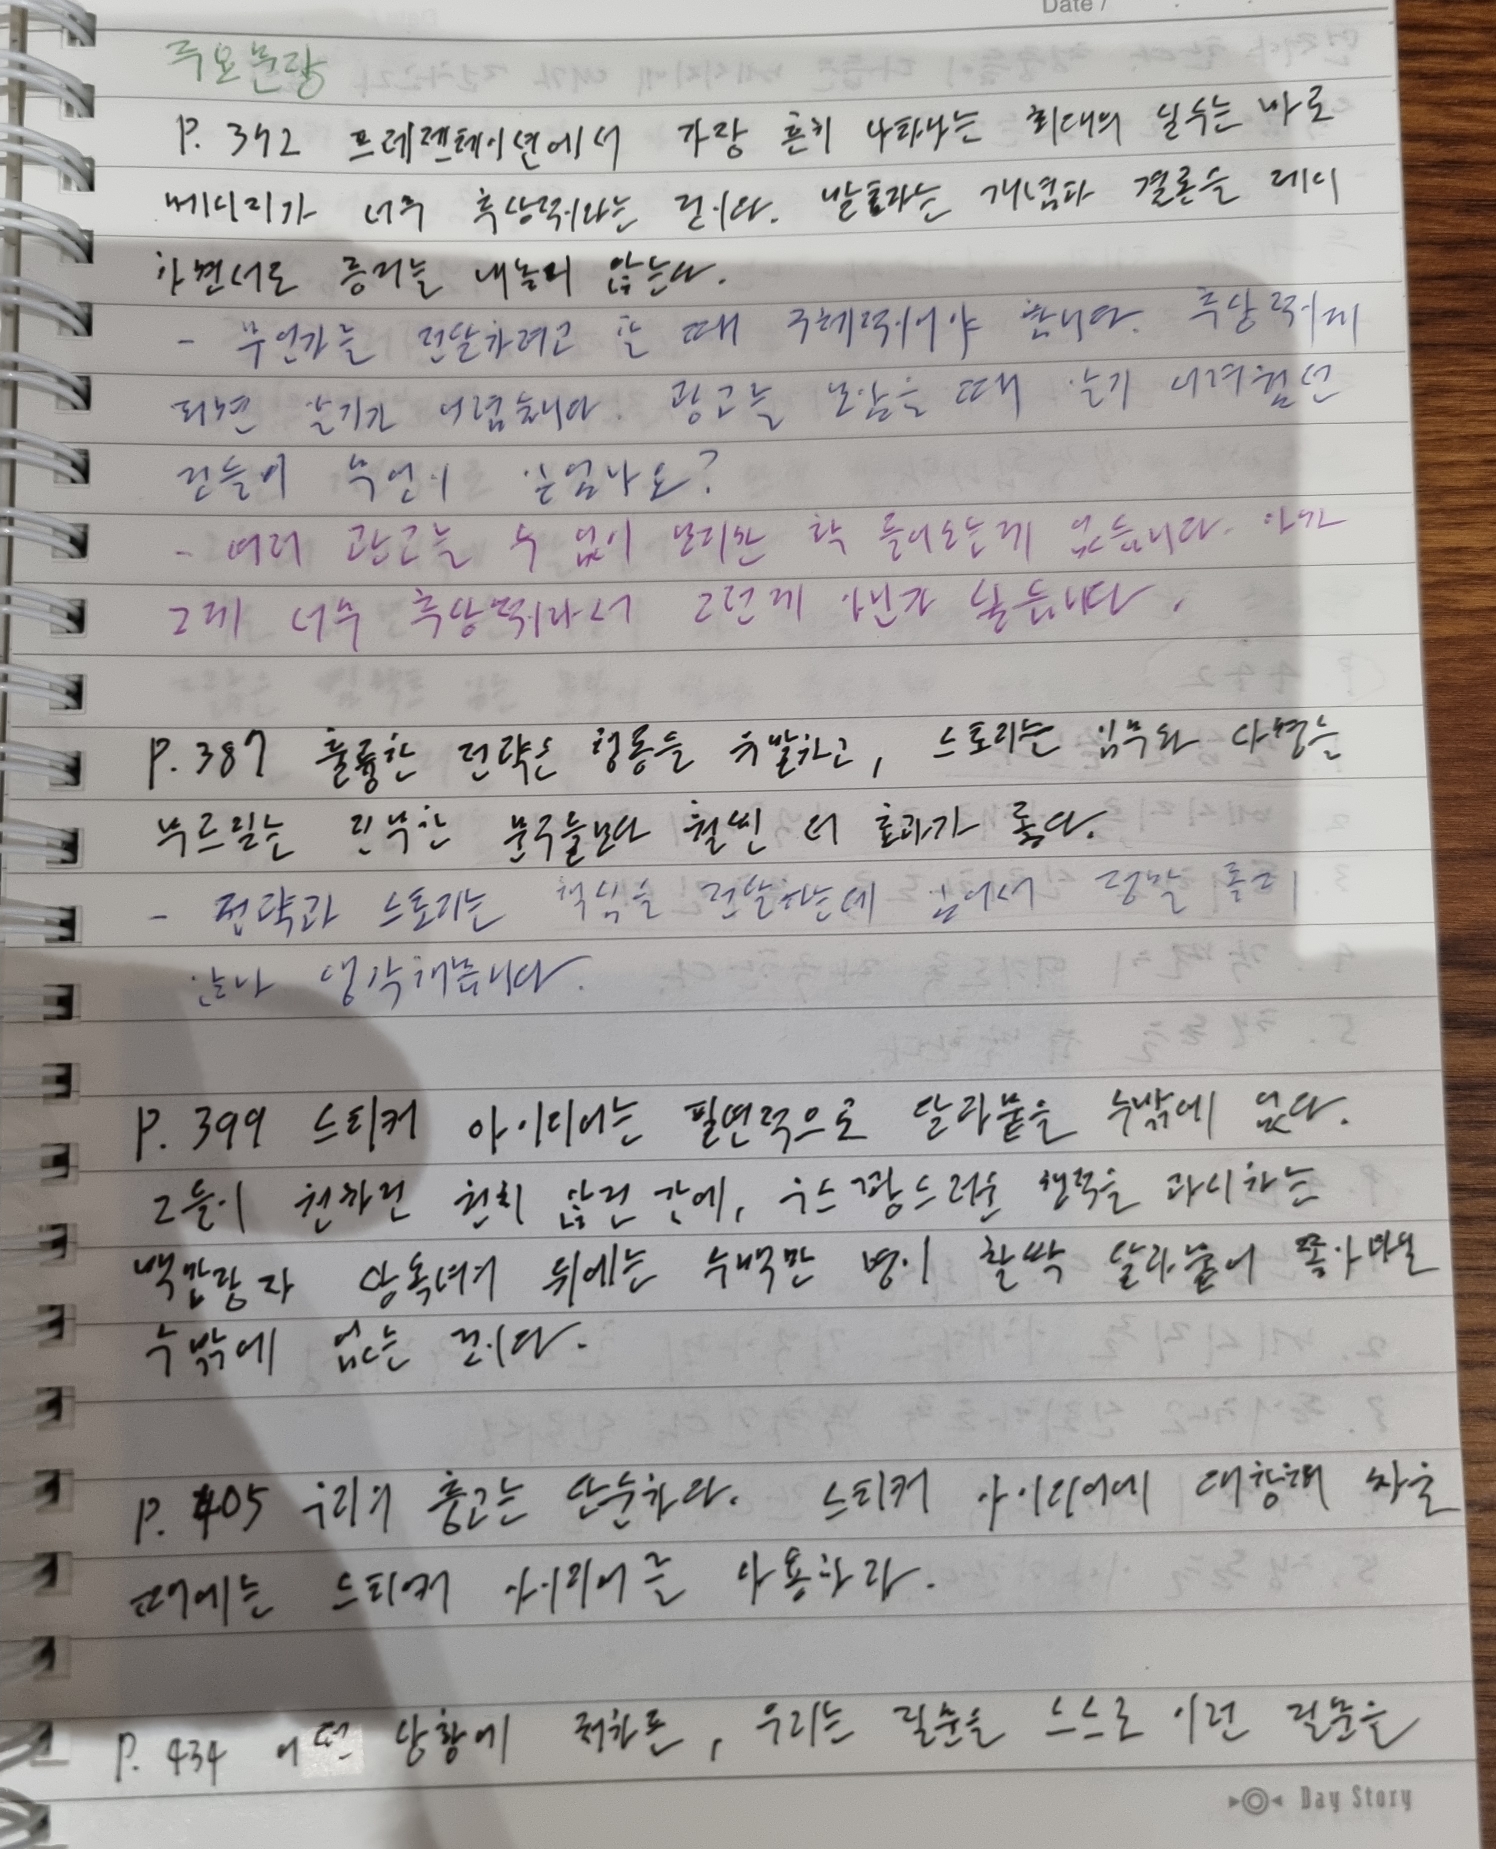 Date /
주요문장
P. 372 프레젠테이션에서 가장 흔히 나타나는 최대의 실수는 바로
메시지가 너무 추상적이라는 것이다. 발표자는 개념과 결론을 제시
하면서도 증거는 내놓지 않는다.
- 무언가를 전달하려고 할 때 구체적이어야 합니다. 추상적이게
되면 알기가 어렵습니다. 광고를 보았을 때 알기 어려웠던
것들이 무엇이 있었나요?
- 여러 광고를 수 없이 보지만 확 들어오는게 없습니다. 아마
그게 너무 추상적이라서 그런게 아닌가 싶습니다.
P. 387 훌륭한 전략은 행동을 유발하고, 스토리는 임무와 사명을
부르짖는 진부한 문구들보다 훨씬 더 효과가 좋다.
- 전략과 스토리는 책임을 전달하는데 있어서 정말 좋지
않나 생각해봅니다.
P. 399 스티커 아이디어는 필연적으로 달라붙을 수밖에 없다.
그들이 원하건 원치 않건 간에, 우스꽝스러운 행적을 과시하는
백만장자 상속녀의 뒤에는 수백만 명이 찰싹 달라붙어 쫓아다닐
수밖에 없는 것이다.
P. 405 우리의 충고는 단순하다. 스티커 아이디어에 대항해 싸울
때에는 스티커 아이디어를 사용하라.
P. 434 어떤 상황에 처하든, 우리는 질문을 스스로 이런 질문을
Day Story